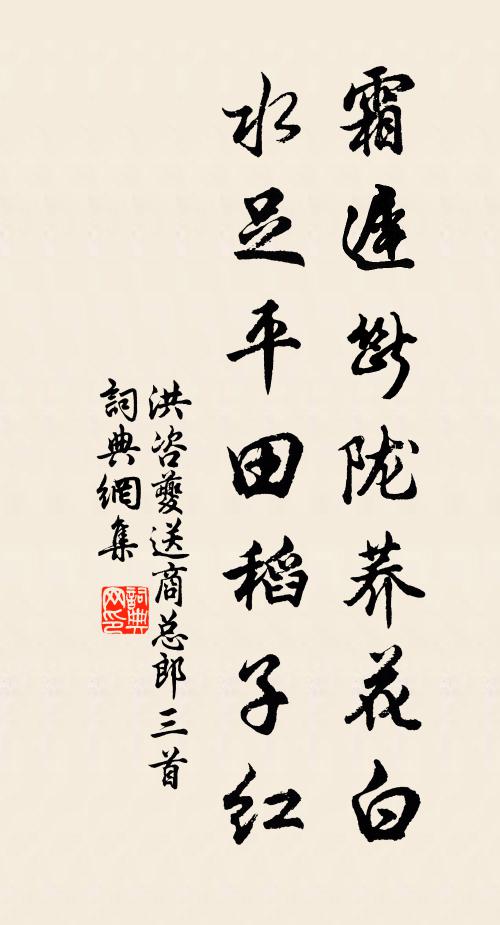 霜遲斷陇荞花白
水足平田稻子红
洪咨夔送商总郎三首
詞典網集
詞典网印